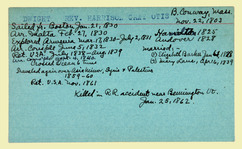 DWIGHT REV. HARRISON GRAY OTIS
B. Conway, Mass.
Nov. 22, 1803
Sailed fr. Boston Jan. 21, 1830
Hamilton 1825
Arr. Malta Feb. 27, 1830
Andover 1828
Explored Armenia Mar. 17, 1830 - July 2, 1831
Arr. Constple June 5, 1832
Married:-
Ret. U.S.A. July 1838 - Aug. 1839
(1) Elizabeth Barker Jan. 4, 1830
(2) Mary Lane, Apr. 16, 1839
Traveled again over Asia Minor, Syria & Palestine
1859-60
Ret. U.S.A. Nov. 1861
Killed - R.R. accident near Bennington, Vt.
Jan. 25, 1862